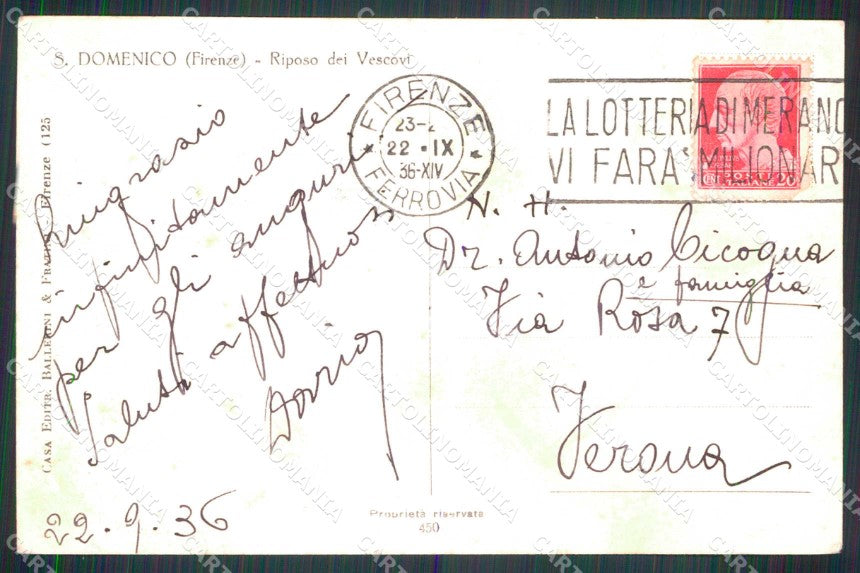 S. DOMENICO (Firenze) - Riposo dei Vescovi
CASA EDITR. BALLERINI & FRATINI - Firenze (125
Ringrazio
infinitamente
per gli auguri
Saluti affettuosi
Dario
22.9.36
FIRENZE
23-2
22 IX
36-XIV
FERROVIA
LA LOTTERIA DI MERANO
VI FARA' MILIONAR
POSTE
ITALIANE
CENT 20
N. H.
Dr. Antonio Cicogna
e famiglia
Via Rosa 7
Verona
Proprietà riservata
450
CARTOLINOMANIA